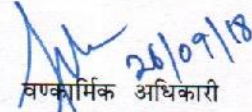 26/09/18
वण्कार्मिक अधिकारी